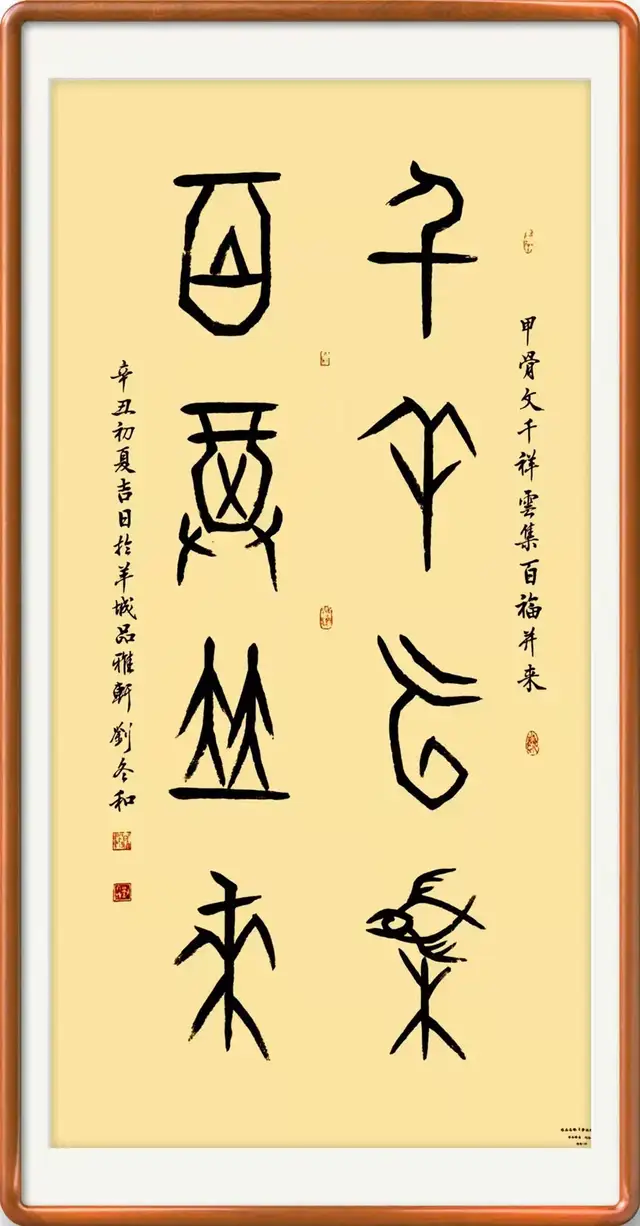 甲骨文千祥雲集百福並来
千祥雲集
百福並來
辛丑初夏吉日於羊城品雅軒劉冬和